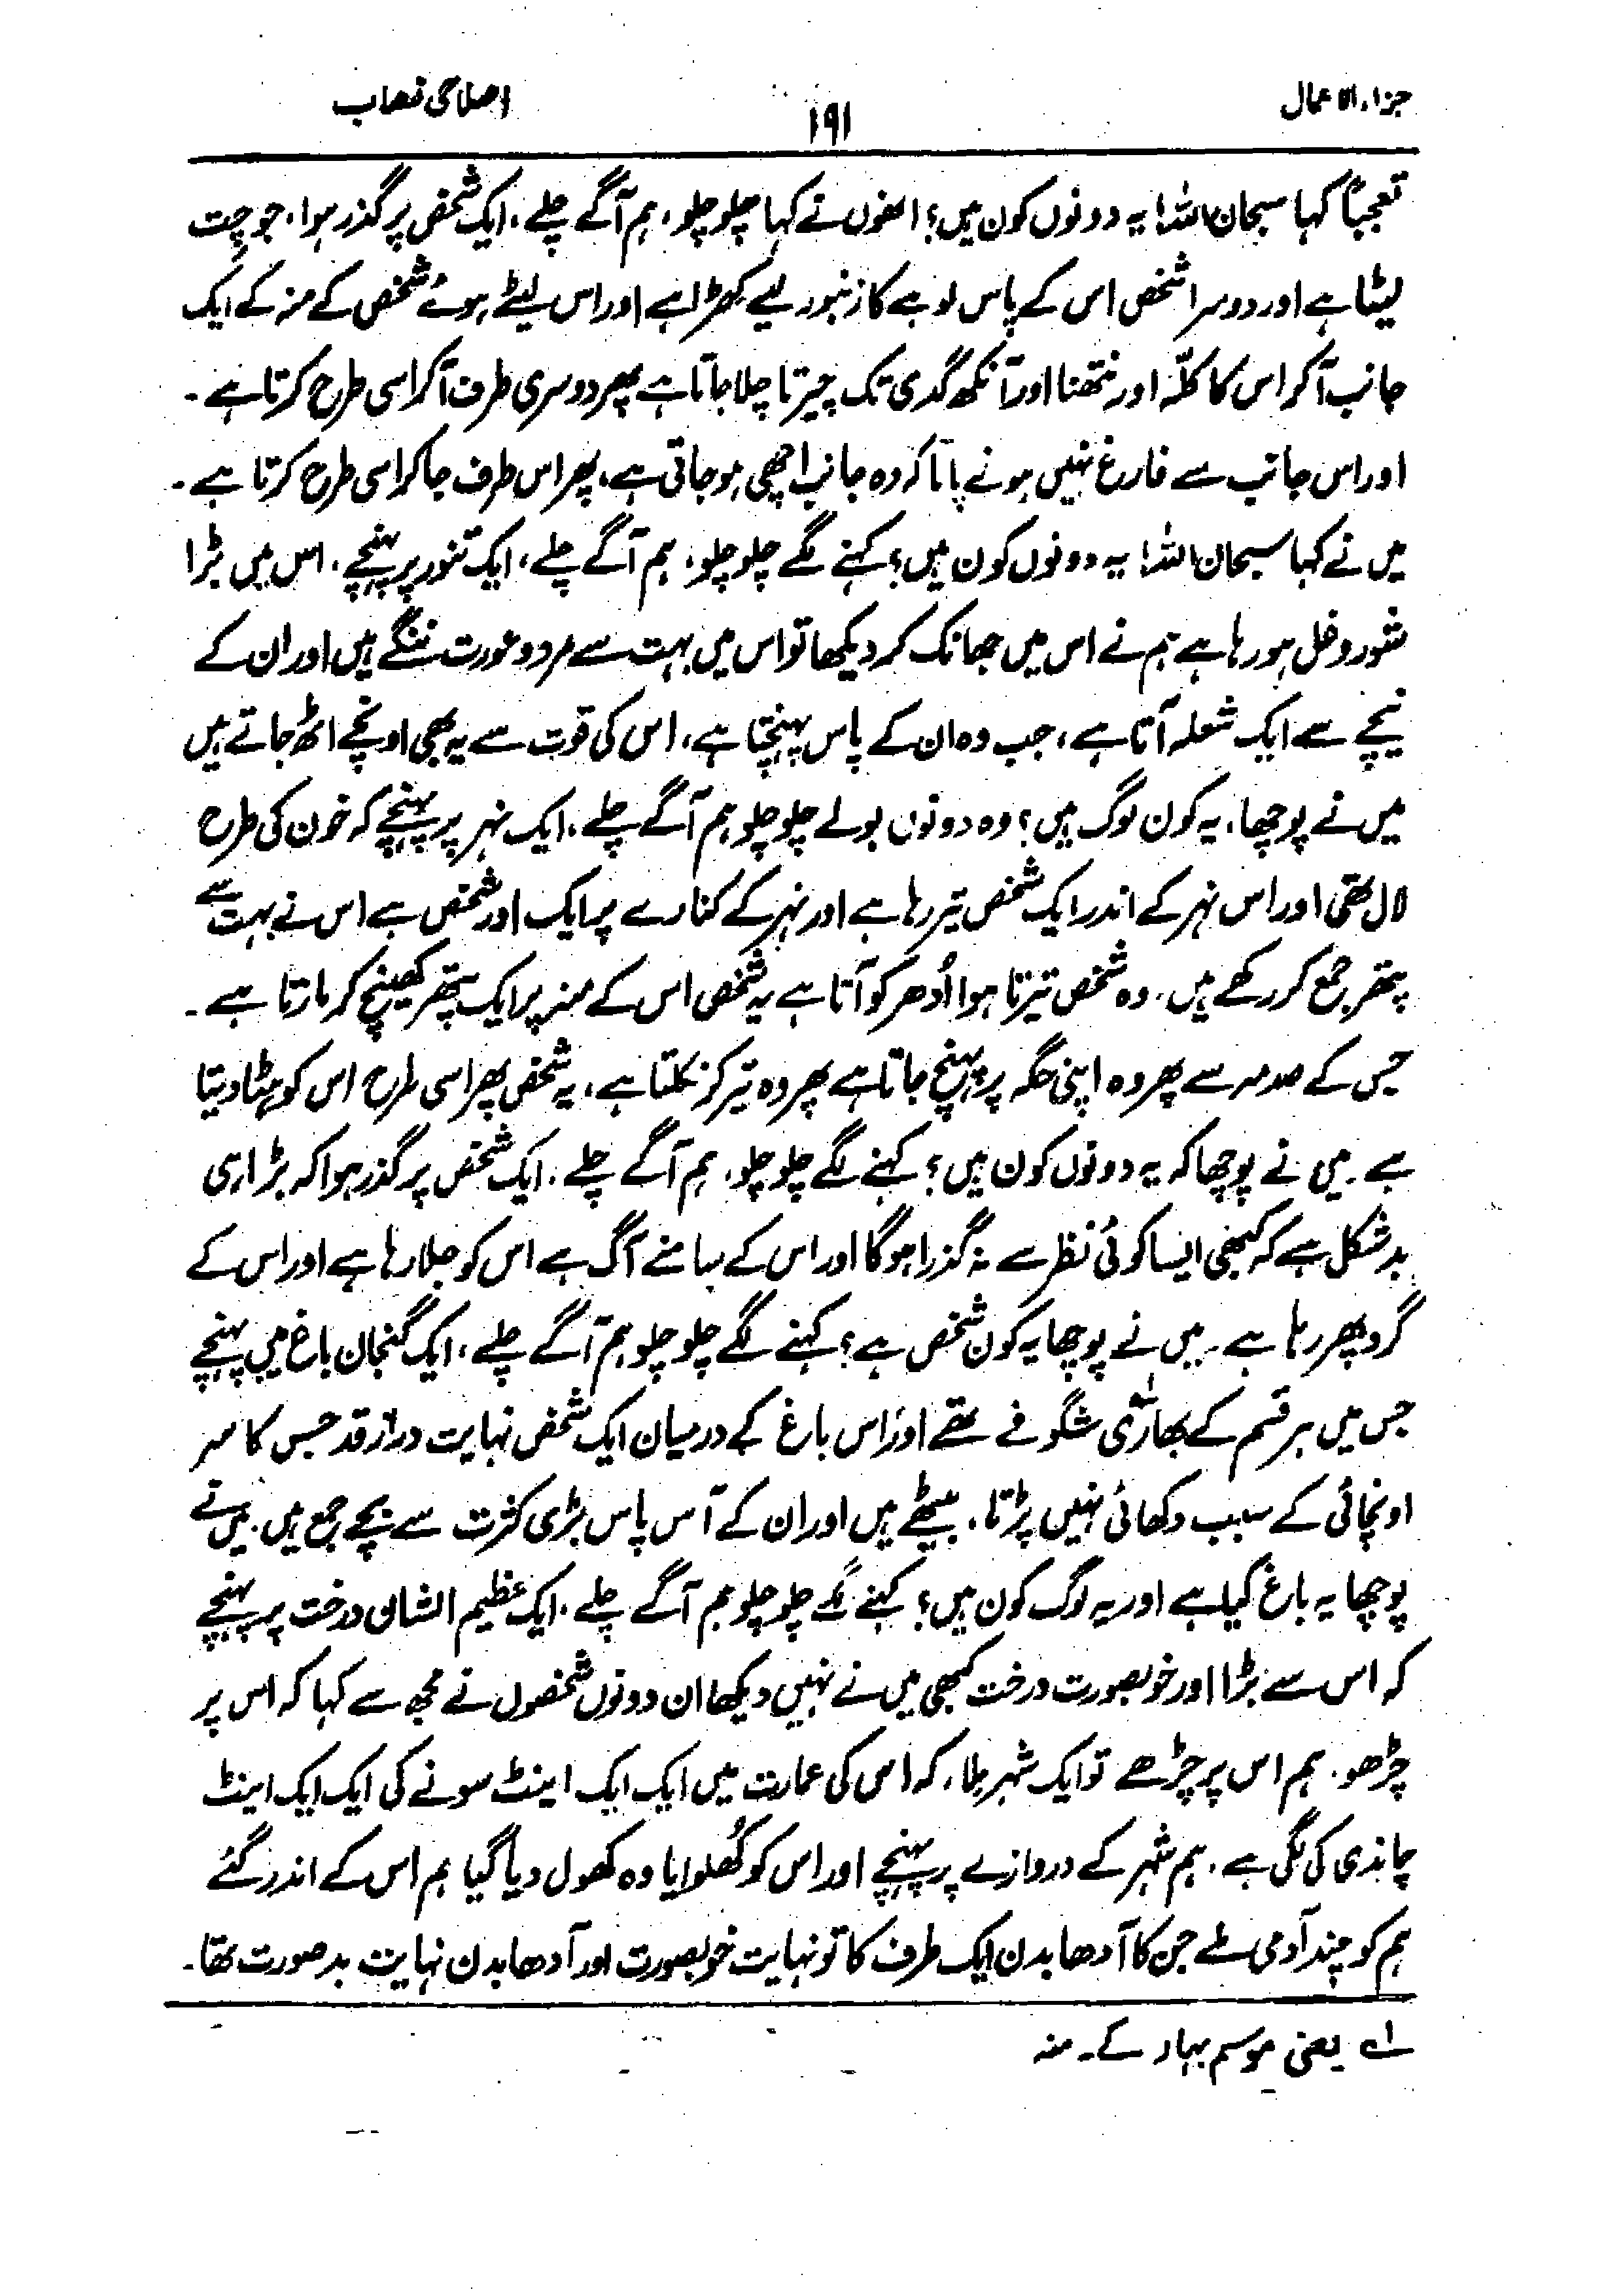 جزاء الاعمال ۱۹۱ اصلاحی نصاب
تعجباً کہا سبحان اللہ! یہ دونوں کون ہیں؟ انھوں نے کہا چلو چلو، ہم آگے چلے، ایک شخص پر گذر ہوا، جو چِت
لیٹا ہے اور دوسرا شخص اس کے پاس لوہے کا زنبور لیے کھڑا ہے اور اس لیٹے ہوئے شخص کے منہ کے ایک
جانب آکر اس کا کلّہ اور نتھنا اور آنکھ گدی تک چیرتا چلا جاتا ہے پھر دوسری طرف آکر اسی طرح کرتا ہے۔
اور اس جانب سے فارغ نہیں ہونے پاتا کہ وہ جانب اچھی ہو جاتی ہے، پھر اس طرف جا کر اسی طرح کرتا ہے۔
میں نے کہا سبحان اللہ! یہ دونوں کون ہیں؟ کہنے لگے چلو چلو، ہم آگے چلے، ایک تنور پر پہنچے، اس میں بڑا
شور و غل ہو رہا ہے ہم نے اس میں جھانک کر دیکھا تو اس میں بہت سے مرد و عورت ننگے ہیں اور ان کے
نیچے سے ایک شعلہ آتا ہے، جب وہ ان کے پاس پہنچتا ہے، اس کی قوت سے یہ بھی اونچے اٹھ جاتے ہیں
میں نے پوچھا، یہ کون لوگ ہیں؟ وہ دونوں بولے چلو چلو ہم آگے چلے، ایک نہر پر پہنچے کہ خون کی طرح
لال تھی اور اس نہر کے اندر ایک شخص تیر رہا ہے اور نہر کے کنارے پر ایک اور شخص ہے اس نے بہت سے
پتھر جمع کر رکھے ہیں، وہ شخص تیرتا ہوا اُدھر کو آتا ہے یہ شخص اس کے منہ پر ایک پتھر کھینچ کر مارتا ہے۔
جس کے صدمہ سے پھر وہ اپنی جگہ پر پہنچ جاتا ہے پھر وہ تیر کر نکلتا ہے، یہ شخص پھر اسی طرح اس کو ہٹا دیتا
ہے۔ میں نے پوچھا کہ یہ دونوں کون ہیں؟ کہنے لگے چلو چلو، ہم آگے چلے، ایک شخص پر گذر ہوا کہ بڑا ہی
بد شکل ہے کہ کبھی ایسا کوئی نظر سے نہ گذرا ہوگا اور اس کے سامنے آگ ہے اس کو جلا رہا ہے اور اس کے
گرد پھر رہا ہے۔ میں نے پوچھا یہ کون شخص ہے؟ کہنے لگے چلو چلو ہم آگے چلے، ایک گنجان باغ میں پہنچے
جس میں ہر قسم کے بہاری۱ شگوفے تھے اور اس باغ کے درمیان ایک شخص نہایت دراز قد جس کا سر
اونچائی کے سبب دکھائی نہیں پڑتا، بیٹھے ہیں اور ان کے آس پاس بڑی کثرت سے بچے جمع ہیں۔ میں نے
پوچھا یہ باغ کیا ہے اور یہ لوگ کون ہیں؟ کہنے لگے چلو چلو ہم آگے چلے، ایک عظیم الشان درخت پر پہنچے
کہ اس سے بڑا اور خوبصورت درخت کبھی میں نے نہیں دیکھا ان دونوں شخصوں نے مجھ سے کہا کہ اس پر
چڑھو، ہم اس پر چڑھے تو ایک شہر ملا، کہ اس کی عمارت میں ایک ایک اینٹ سونے کی ایک ایک اینٹ
چاندی کی لگی ہے، ہم شہر کے دروازے پر پہنچے اور اس کو کُھلوایا وہ کھول دیا گیا ہم اس کے اندر گئے
ہم کو چند آدمی ملے جن کا آدھا بدن ایک طرف کا تو نہایت خوبصورت اور آدھا بدن نہایت بدصورت تھا۔
۱ے یعنی موسم بہار کے۔ منہ